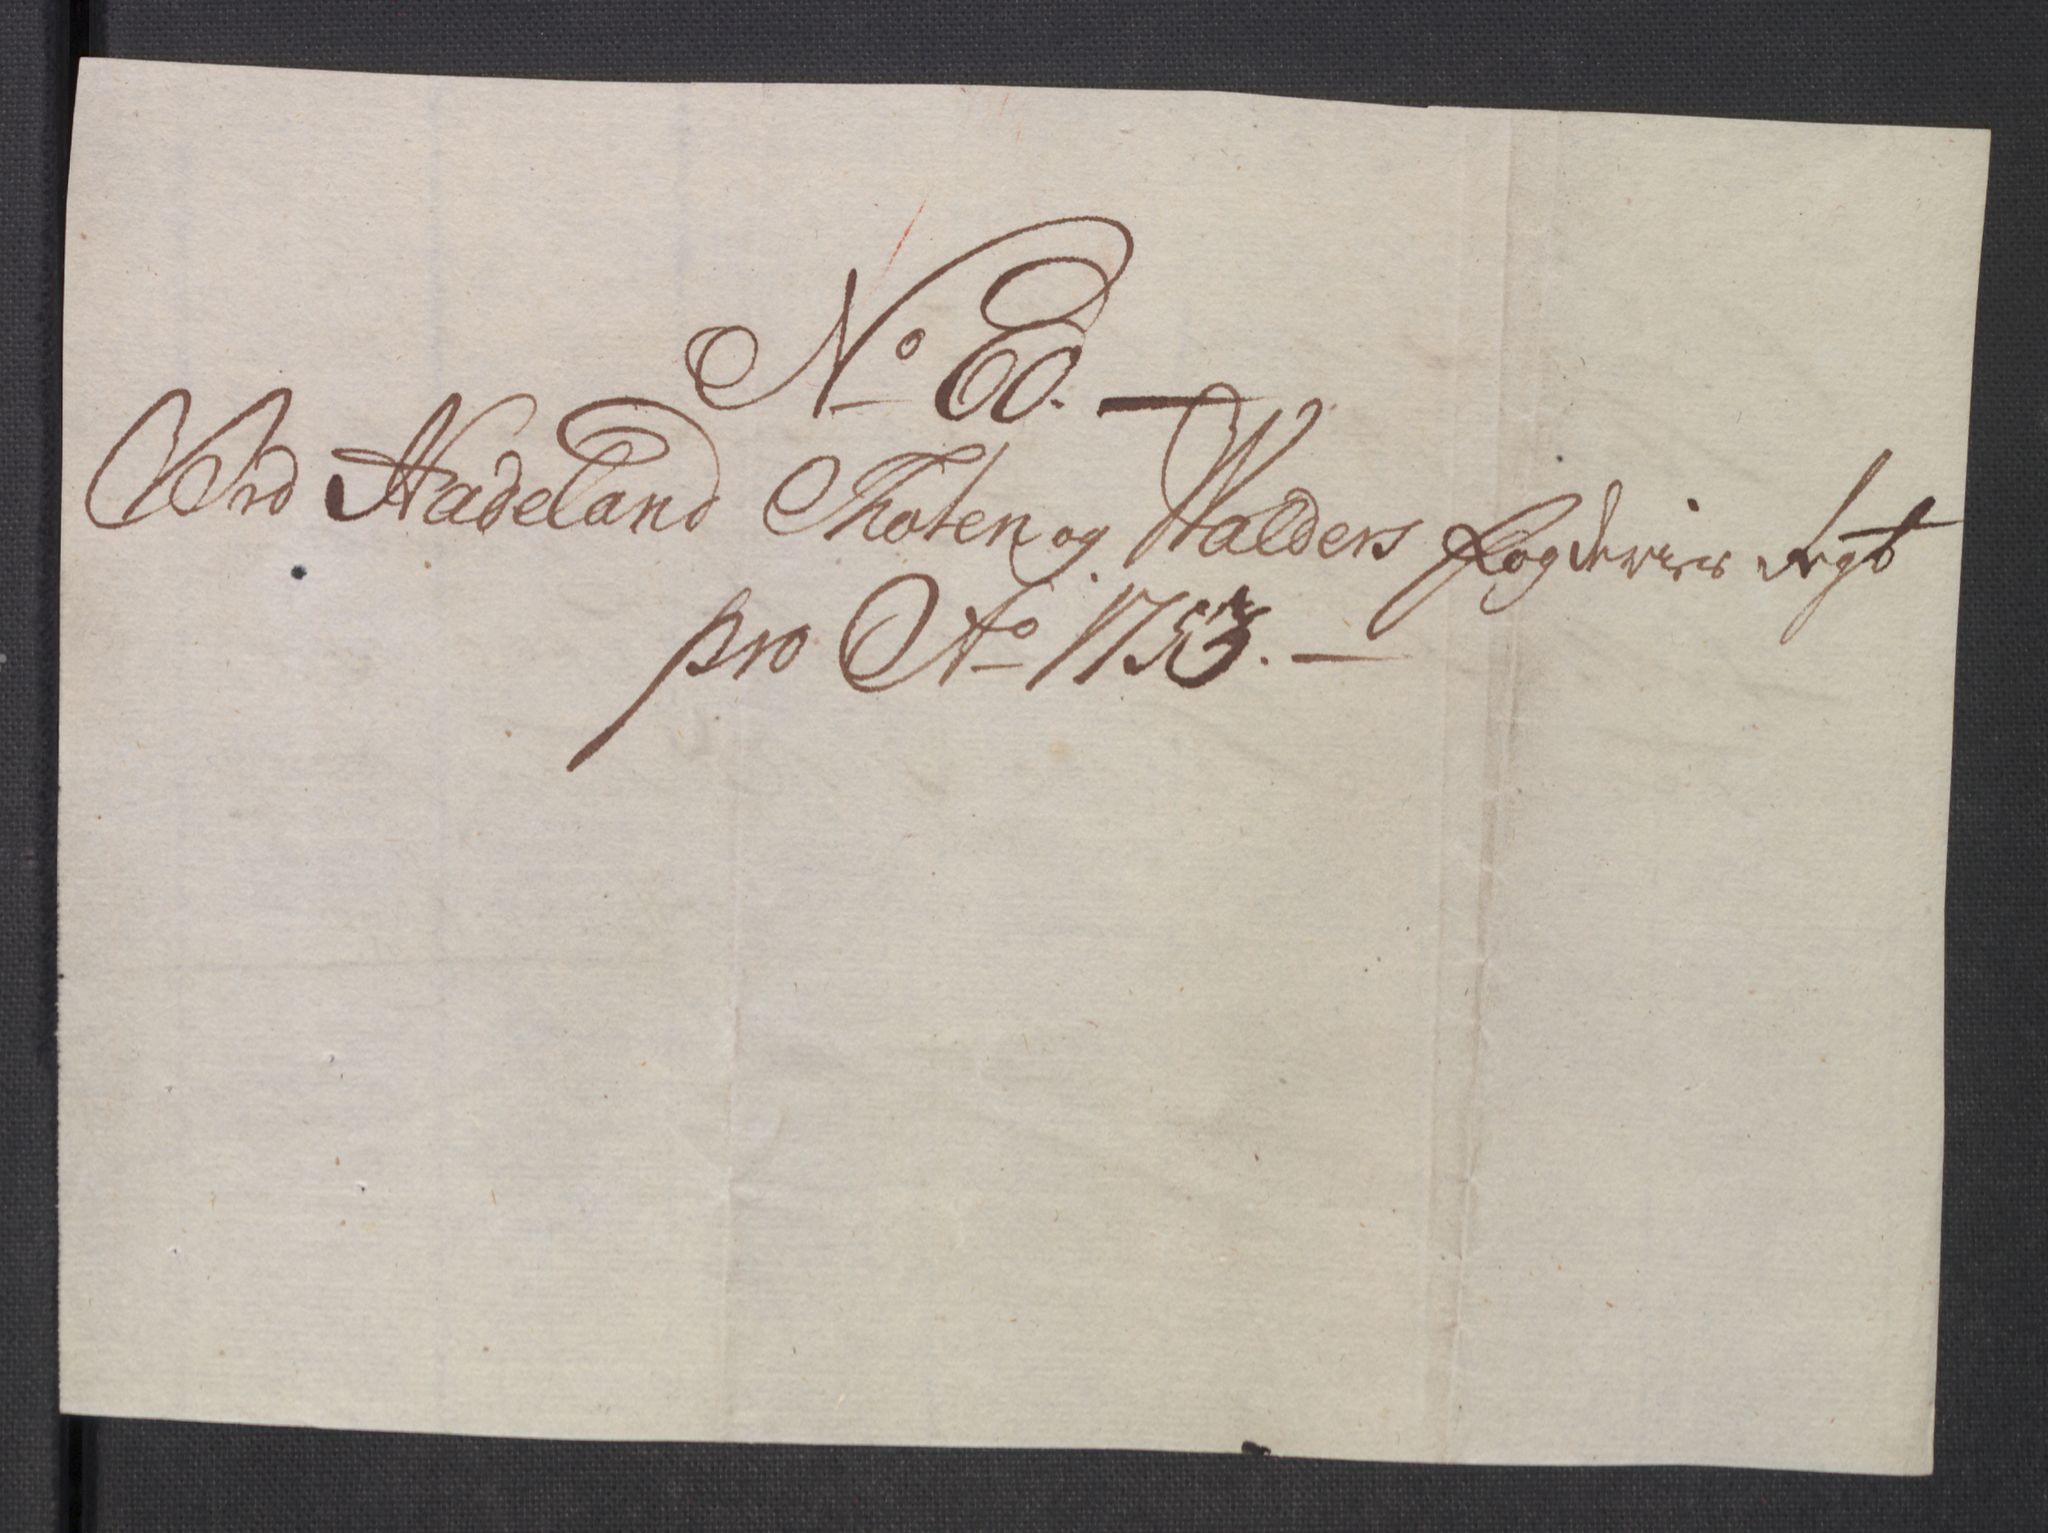 No Ad.
Ved Hadeland Thoten og Walders Fogderies Regsk
pro Ao 1753.